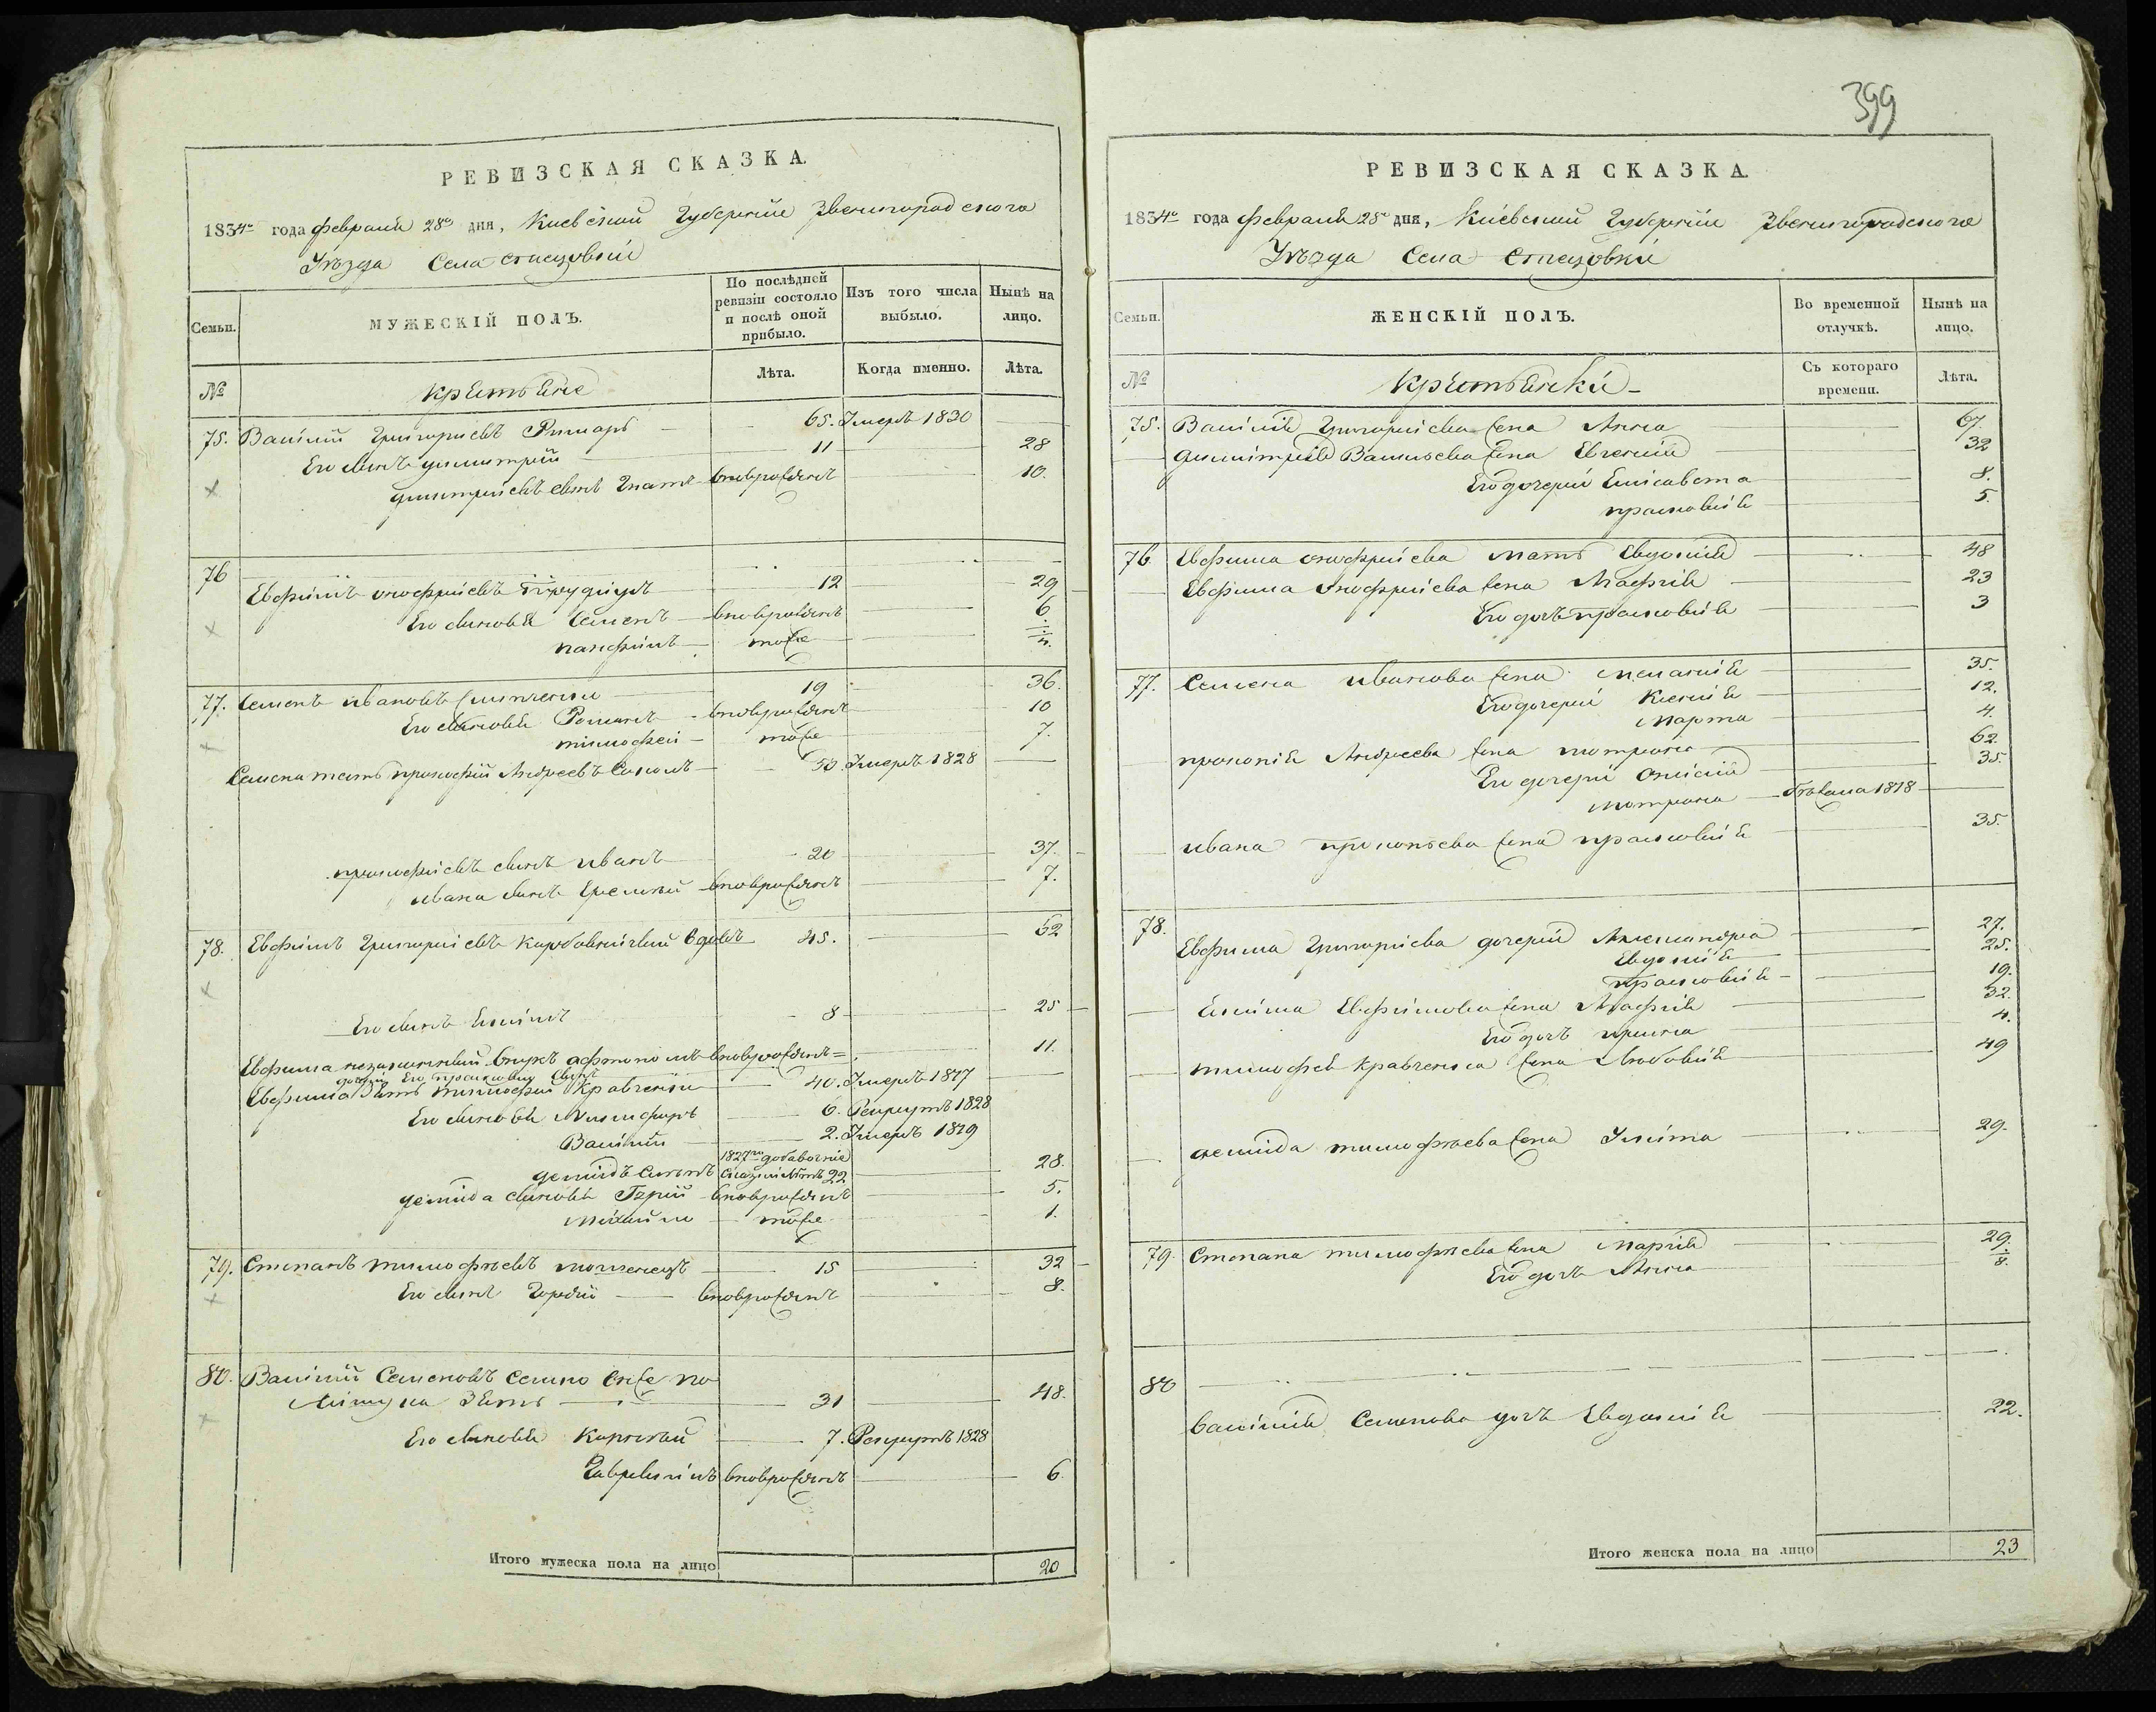 РЕВИЗСКАЯ СКАЗКА.
1834го года февраля 28го дня, Киевской Губернии Звенигородского
Уѣзда Села Стецовки
Семьи.
МУЖЕСКІЙ ПОЛЪ.
По послѣдней ревизіи состояло и послѣ оной прибыло.
Изъ того числа выбыло.
Нынѣ на лицо.
№
крестьяне
Лѣта.
Когда именно.
Лѣта.
75. Василий Григориевъ Римарь 65. Умеръ 1830
Его сынъ Димитрий 11 28
Димитриевъ сынъ Игнатъ вновьрожденъ 10.
76
Евфимъ онофриевъ 12 29
Его сыновья Семенъ вновьрожденъ 6.
панфилъ тоже
77. Семенъ ивановъ 19 36.
Его сыновья Романъ вновьрожденъ 10
тимофей тоже 7.
Семена тесть прокофий Андреевъ 53. Умеръ 1828
прокофиевъ сынъ иванъ 20 37.
ивана сынъ вновьрожденъ 7.
78. Евфимъ Григориевъ вдовъ 45. 62
Его сынъ 8 25
Евфима незаконный внукъ вновьрожденъ 11.
дочери Его прасковии сынъ
Евфима Зять тимофей Кравченко 40. Умеръ 1817
Его сыновья Никифоръ 6. Рекрутъ 1828
Василий 2. Умеръ 1819
1827го добавочной
демидъ 22 28.
демида сыновья вновьрожденъ 5.
Михайло тоже 1.
79. Степанъ тимофѣевъ 15 32
Его сынъ Гордій вновьрожденъ 8.
80. Василий Семеновъ
Зять 31 48.
Его сыновья 7. Рекрутъ 1828
вновьрожденъ 6
Итого мужеска пола на лицо
20
399
РЕВИЗСКАЯ СКАЗКА.
1834го года февраля 28го дня, Киевской Губернии Звенигородского
Уѣзда Села Стецовки
Семьи.
ЖЕНСКІЙ ПОЛЪ.
Во временной отлучкѣ.
Нынѣ на лицо.
№
крестьянки
Съ котораго времени.
Лѣта.
75. Василия Григориева жена Анна 67.
Димитрия Васильева жена Евгения 32
Его дочери Елисавета 8.
прасковия 5.
76 Евфима онофриева мать Евдокия 48
Евфима онофриева жена Агафия 23
Его дочь прасковия 3
77. Семена иванова жена мелания 35.
Его дочери Ксения 12.
Марта 4.
прокопия Андреева жена мотрона 62.
Его дочери Онисия 35.
мотрона бежала 1818
ивана прокопьева жена прасковия 35.
78. Евфима Григориева дочери Александра 27.
Евдокия 25.
прасковия 19.
Евфимова жена Агафия 32.
Его дочь ирина 4.
тимофея Кравченка жена Любовия 49
демида тимофѣева жена Улита 29.
79. Степана тимофѣева жена Мария 29.
Его дочь Анна 8.
80
василия Семенова дочь Евдокия 22.
Итого женска пола на лицо
23